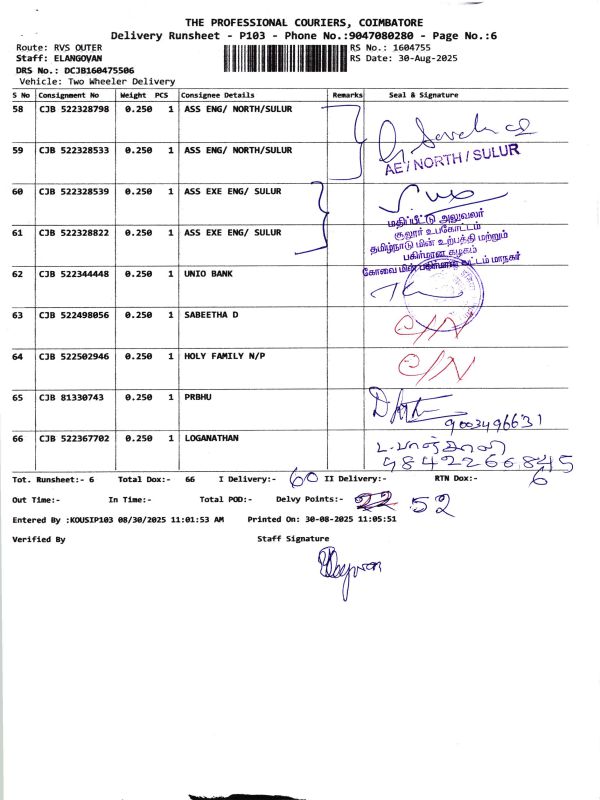 THE PROFESSIONAL COURIERS, COIMBATORE
Delivery Runsheet - P103 - Phone No.:9047080280 - Page No.:6
Route: RVS OUTER
RS No.: 1604755
Staff: ELANGOVAN
RS Date: 30-Aug-2025
DRS No.: DCJB160475506
Vehicle: Two Wheeler Delivery
S No Consignment No Weight PCS Consignee Details Remarks Seal & Signature
58 CJB 522328798 0.250 1 ASS ENG/ NORTH/SULUR
59 CJB 522328533 0.250 1 ASS ENG/ NORTH/SULUR
AE/NORTH/SULUR
60 CJB 522328539 0.250 1 ASS EXE ENG/ SULUR
மதிப்பீட்டு அலுவலர்
சூலூர் உபகோட்டம்
61 CJB 522328822 0.250 1 ASS EXE ENG/ SULUR
தமிழ்நாடு மின் உற்பத்தி மற்றும்
பகிர்மான கழகம்
கோவை மின் பகிர்மான வட்டம் மாநகர்
62 CJB 522344448 0.250 1 UNIO BANK
63 CJB 522498056 0.250 1 SABEETHA D C/N
64 CJB 522502946 0.250 1 HOLY FAMILY N/P C/N
65 CJB 81330743 0.250 1 PRBHU
9003496631
66 CJB 522367702 0.250 1 LOGANATHAN
9842266845
Tot. Runsheet:- 6 Total Dox:- 66 I Delivery:- 60 II Delivery:- RTN Dox:- 6
Out Time:- In Time:- Total POD:- Delvy Points:- 52
Entered By :KOUSIP103 08/30/2025 11:01:53 AM Printed On: 30-08-2025 11:05:51
Verified By Staff Signature